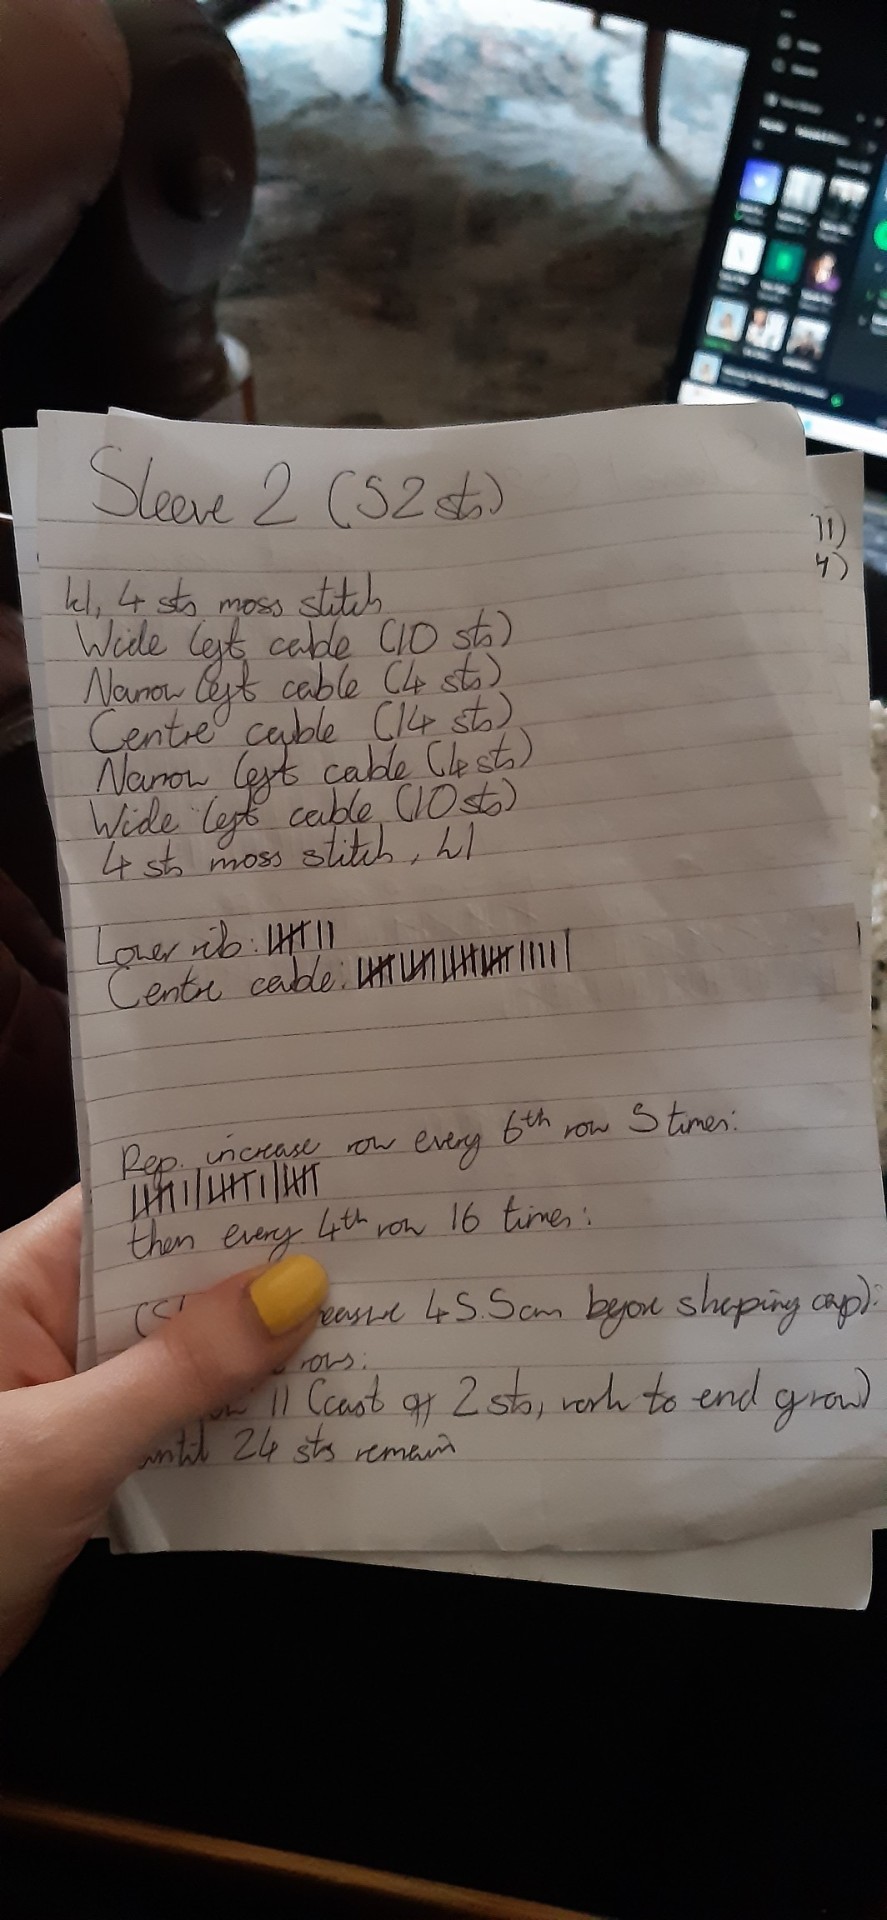 Sleeve 2 (52 sts)
k1, 4 sts moss stitch
Wide left cable (10 sts)
Narrow left cable (4 sts)
Centre cable (14 sts)
Narrow left cable (4 sts)
Wide left cable (10 sts)
4 sts moss stitch, k1
Lower rib:
Centre cable:
Rep. increase row every 6th row 5 times:
then every 4th row 16 times:
45.5cm before shaping cap):
rows:
11 (cast off 2 sts, work to end of row)
until 24 sts remain
11)
4)